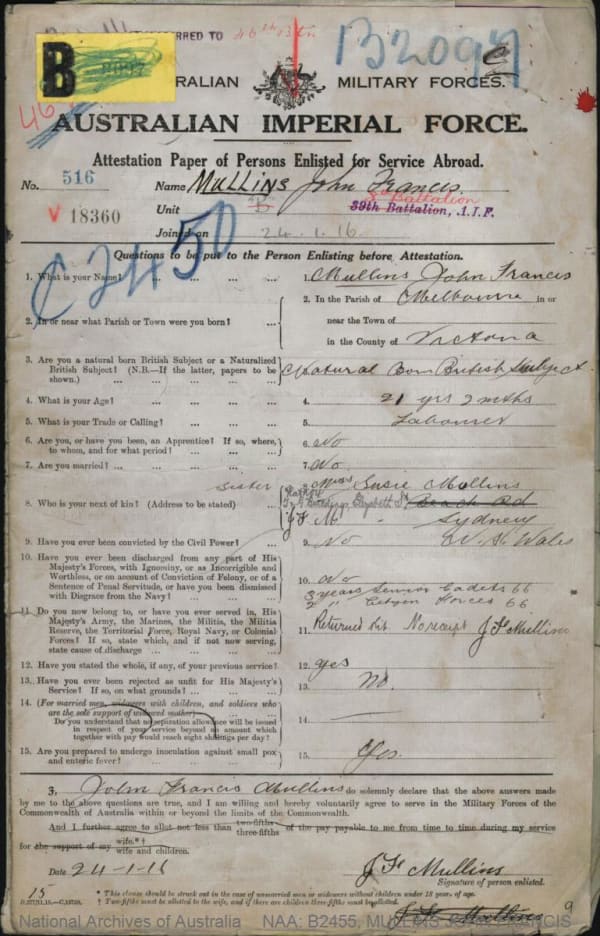 TRANSFERRED TO 46th Btn
B2097
B
AUSTRALIAN MILITARY FORCES.
46
AUSTRALIAN IMPERIAL FORCE.
Attestation Paper of Persons Enlisted for Service Abroad.
No. 516 Name MULLINS John Francis.
V 18360 Unit B 39th Battalion, A.I.F.
8th Battalion
Joined on 24.1.16
C2450
Questions to be put to the Person Enlisting before Attestation.
1. What is your Name? ... ... ... 1. Mullins John Francis
2. In or near what Parish or Town were you born? ... 2. In the Parish of Melbourne in or
near the Town of
in the County of Victoria
3. Are you a natural born British Subject or a Naturalized
British Subject? (N.B.—If the latter, papers to be
shown.) ... ... ... ... ...
3. Natural Born British Subject
4. What is your Age? ... ... ... ... 4. 21 yrs 2 mths
5. What is your Trade or Calling? ... ... ... 5. Labourer
6. Are you, or have you been, an Apprentice? If so, where,
to whom, and for what period? ... ... ...
6. No
7. Are you married? ... ... ... ... ... 7. No
8. Who is your next of kin? (Address to be stated) ...
sister
8. Miss Susie Mullins
Buildings Elizabeth St Beach Rd
J.F.M. Sydney
N.S. Wales
9. Have you ever been convicted by the Civil Power? ... 9. No
10. Have you ever been discharged from any part of His
Majesty's Forces, with Ignominy, or as Incorrigible and
Worthless, or on account of Conviction of Felony, or of a
Sentence of Penal Servitude, or have you been dismissed
with Disgrace from the Navy? ... ... ...
10. No
11. Do you now belong to, or have you ever served in, His
Majesty's Army, the Marines, the Militia, the Militia
Reserve, the Territorial Force, Royal Navy, or Colonial
Forces? If so, state which, and if not now serving,
state cause of discharge ... ... ...
3 years Senior Cadets 66
2 " Citizen Forces 66
11. Returned Kit. No receipt J F Mullins
12. Have you stated the whole, if any, of your previous service? 12. yes
13. Have you ever been rejected as unfit for His Majesty's
Service? If so, on what grounds? ... ... ...
13. No.
14. (For married men, widowers with children, and soldiers who
are the sole support of widowed mother)—
Do you understand that no separation allowance will be issued
in respect of your service beyond an amount which
together with pay would reach eight shillings per day?
14. —
15. Are you prepared to undergo inoculation against small pox
and enteric fever? ... ... ... ...
15. Yes.
I, John Francis Mullins do solemnly declare that the above answers made
by me to the above questions are true, and I am willing and hereby voluntarily agree to serve in the Military Forces of the
Commonwealth of Australia within or beyond the limits of the Commonwealth.
And I further agree to allot not less than two-fifths three-fifths of the pay payable to me from time to time during my service
for the support of my wife.*† wife and children.
Date 24-1-16 J F Mullins
Signature of person enlisted.
15
* This clause should be struck out in the case of unmarried men or widowers without children under 18 years of age.
† Two-fifths must be allotted to the wife, and if there are children three-fifths must be allotted.
J F Mullins 9
National Archives of Australia NAA: B2455, MULLINS JOHN FRANCIS